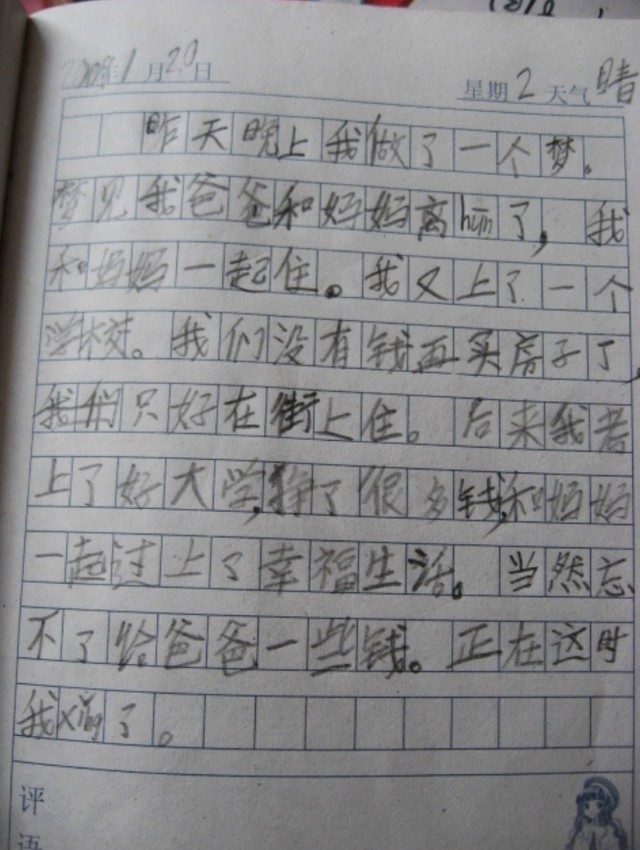 2009年1月20日 星期2 天气晴
昨天晚上我做了一个梦。
梦见我爸爸和妈妈离hūn了，我
和妈妈一起住。我又上了一个
学校。我们没有钱再买房子了，
我们只好在街上住。后来我考
上了好大学，挣了很多钱，和妈妈
一起过上了幸福生活。当然忘
不了给爸爸一些钱。正在这时
我xǐng了。
评
语